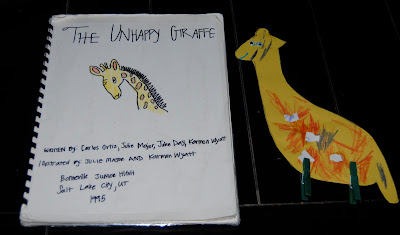 THE UNHAPPY GIRAFFE
written by Carlos Ortiz, Julie Mayer, John Day, Karmen Wyatt
Illustrated by JULIE MAYER AND KARMEN WYATT
Bonneville Junior High
Salt Lake City, UT
1995